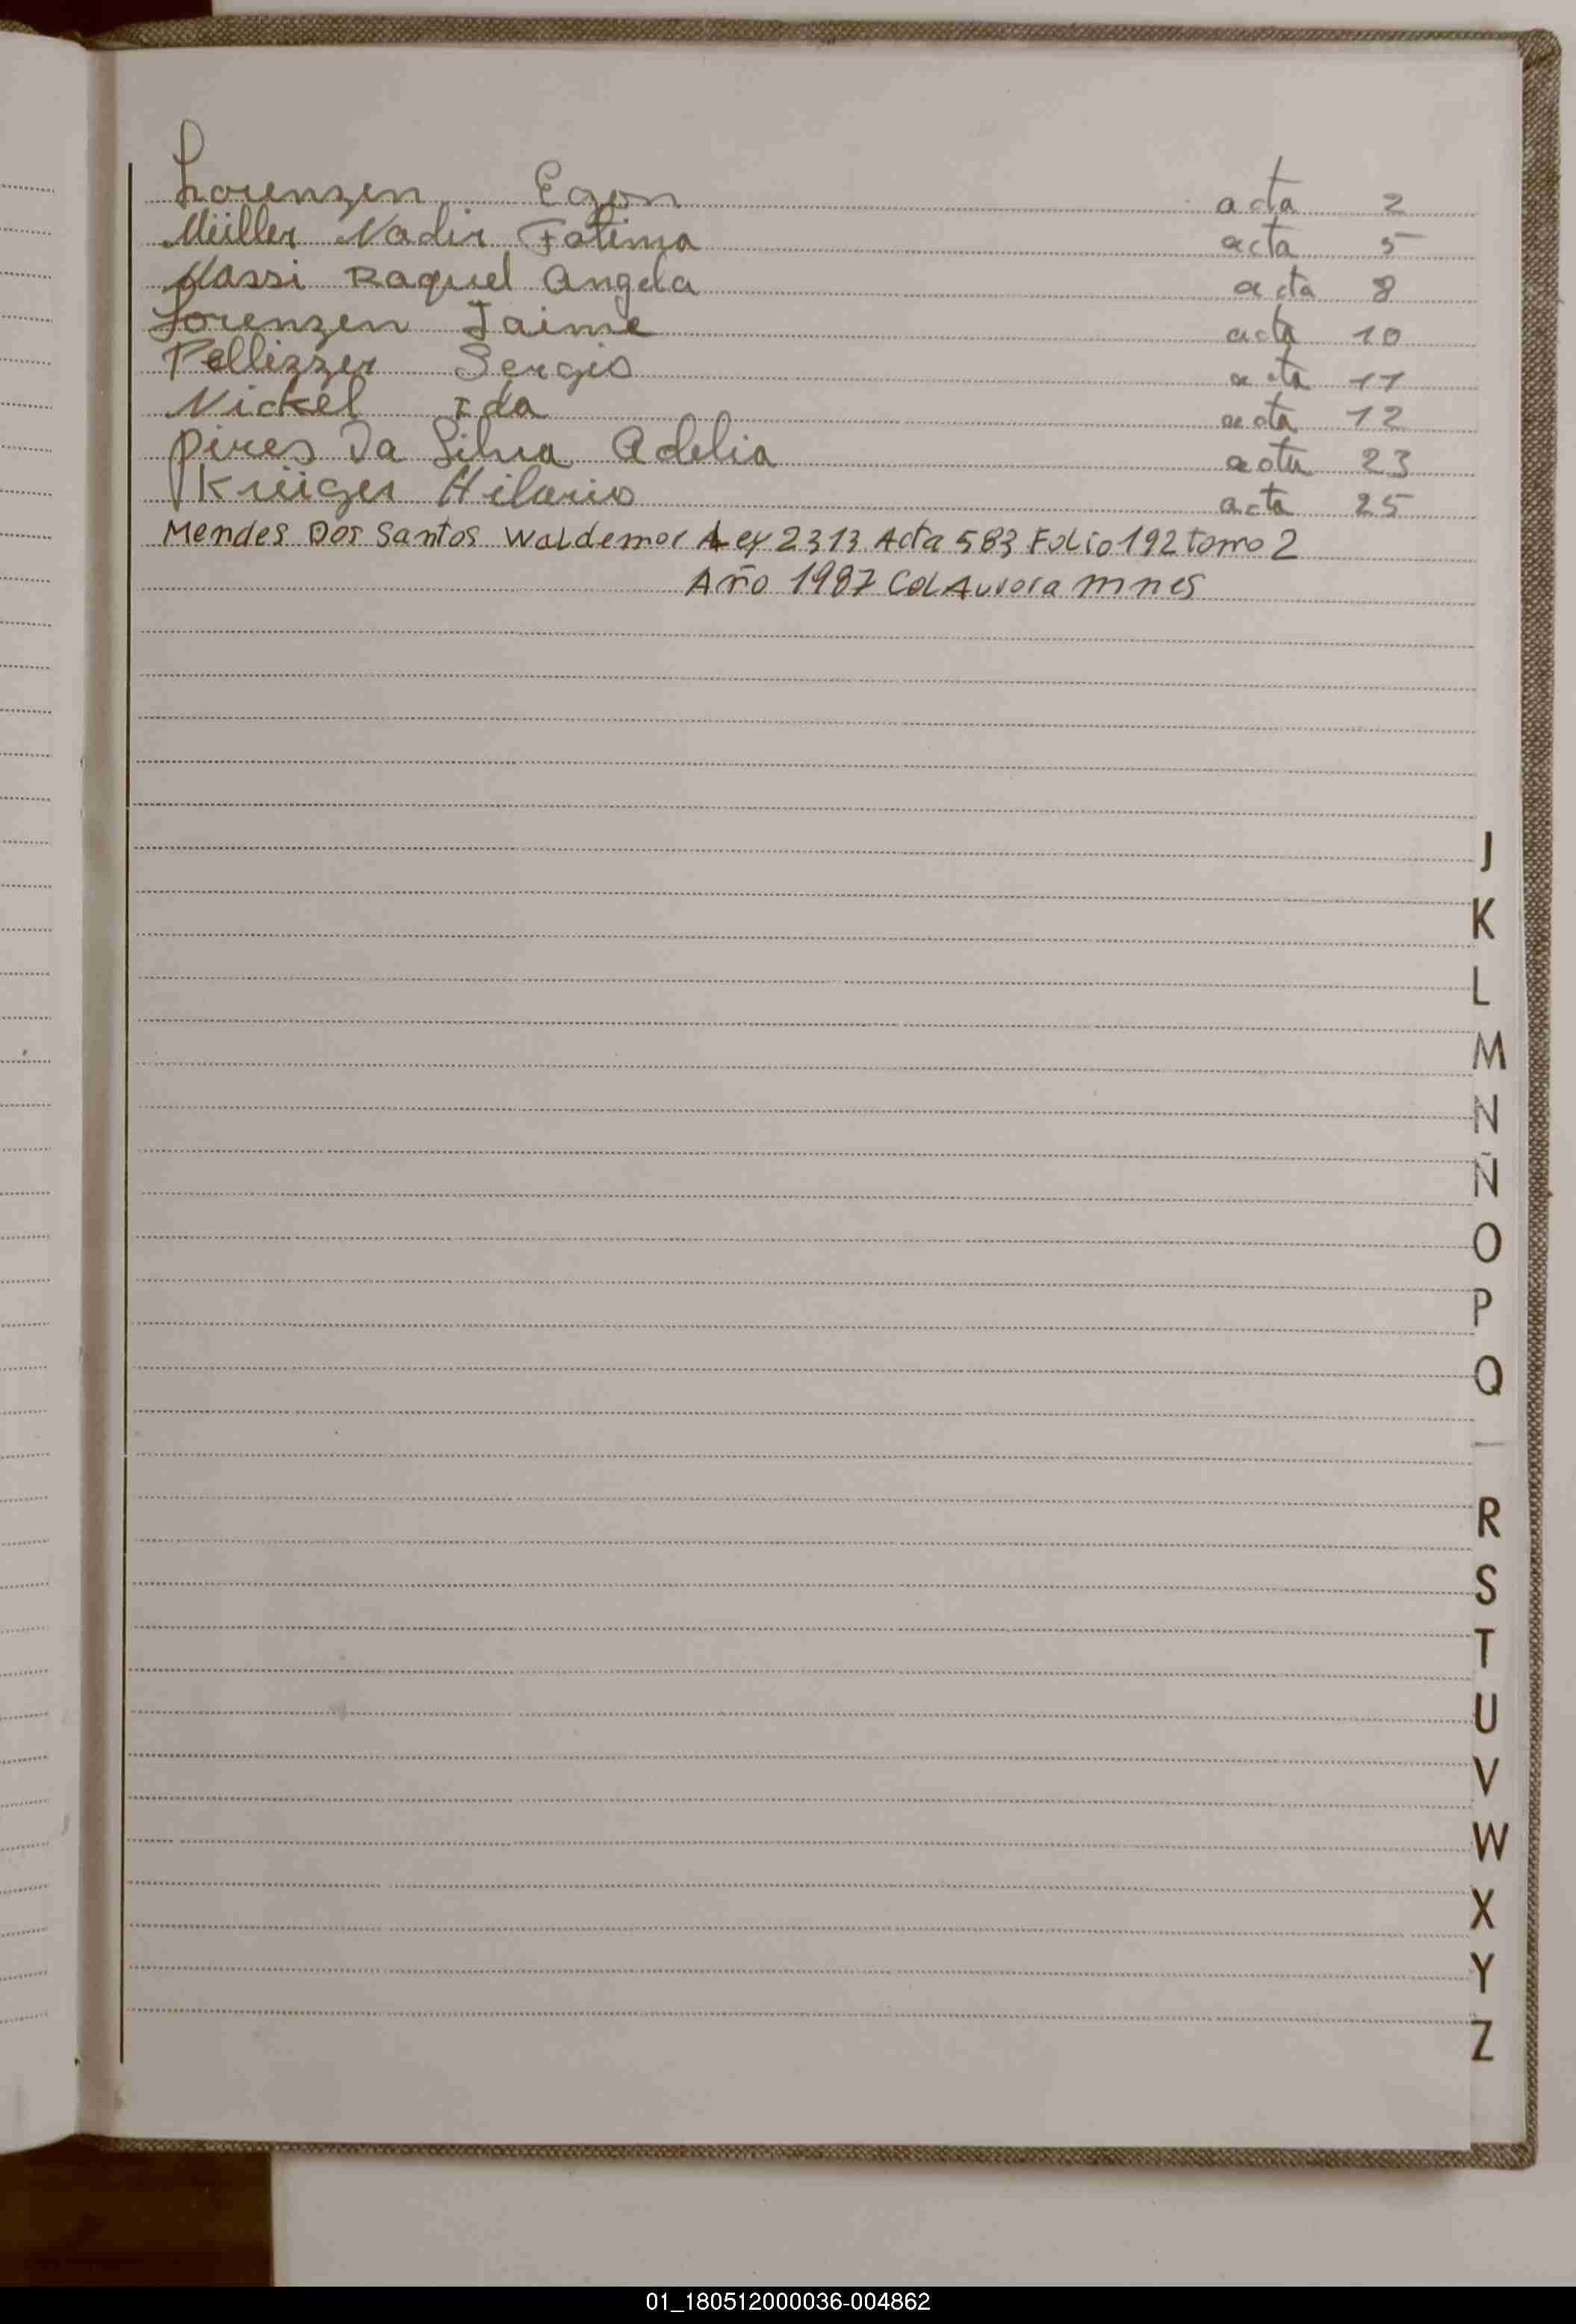 Lorenzen Egon acta 2
Müller Nadir Fatima acta 5
Nassi Raquel Angela acta 8
Lorenzen Jaime acta 10
Pellizzer Sergio acta 11
Nickel Ida acta 12
Pires Da Silva Adelia acta 23
Krüiger Hilario acta 25
Mendes Dos Santos Waldemar Ley 2313 Acta 583 Folio 192 tomo 2
Año 1987 Col Aurora Mnes
J
K
L
M
N
Ñ
O
P
Q
R
S
T
U
V
W
X
Y
Z
01_180512000036-004862